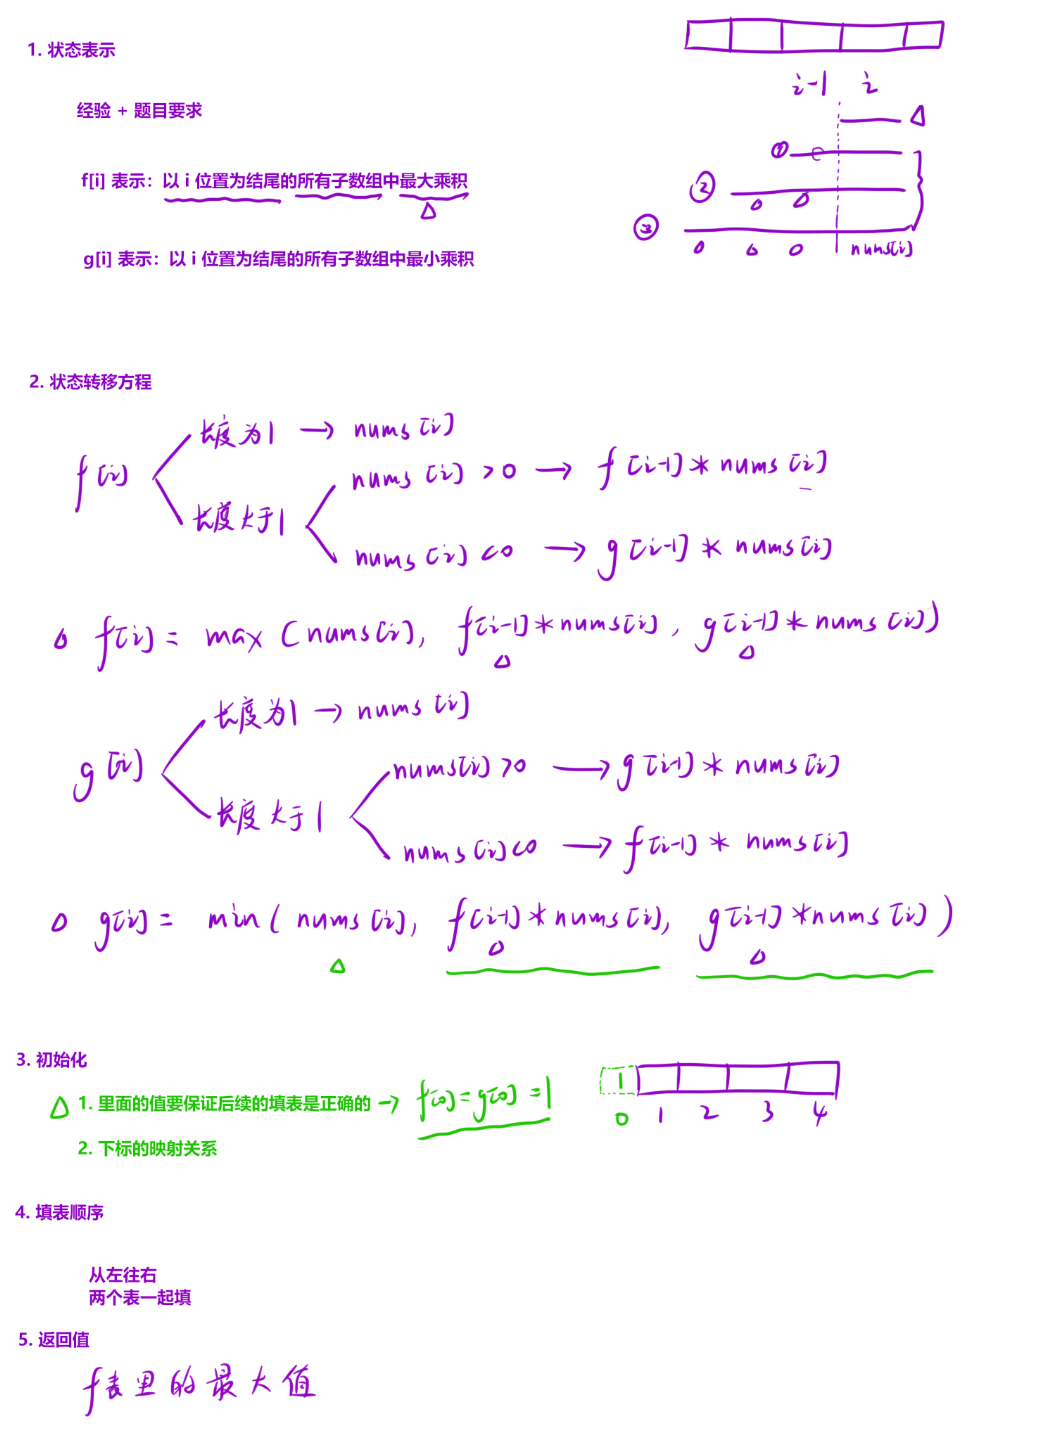 1. 状态表示
i-1 i
经验 + 题目要求
①
f[i] 表示：以 i 位置为结尾的所有子数组中最大乘积
②
③
nums[i]
g[i] 表示：以 i 位置为结尾的所有子数组中最小乘积
2. 状态转移方程
f[i]
长度为1 → nums[i]
长度大于1
nums[i] >0 → f[i-1] * nums[i]
nums[i] <0 → g[i-1] * nums[i]
f[i] = max (nums[i], f[i-1] * nums[i], g[i-1] * nums[i])
g[i]
长度为1 → nums[i]
长度大于1
nums[i] >0 → g[i-1] * nums[i]
nums[i] <0 → f[i-1] * nums[i]
g[i] = min( nums[i], f[i-1] * nums[i], g[i-1] * nums[i] )
3. 初始化
1. 里面的值要保证后续的填表是正确的 → f[0] = g[0] = 1
1
0 1 2 3 4
2. 下标的映射关系
4. 填表顺序
从左往右
两个表一起填
5. 返回值
f表里的最大值